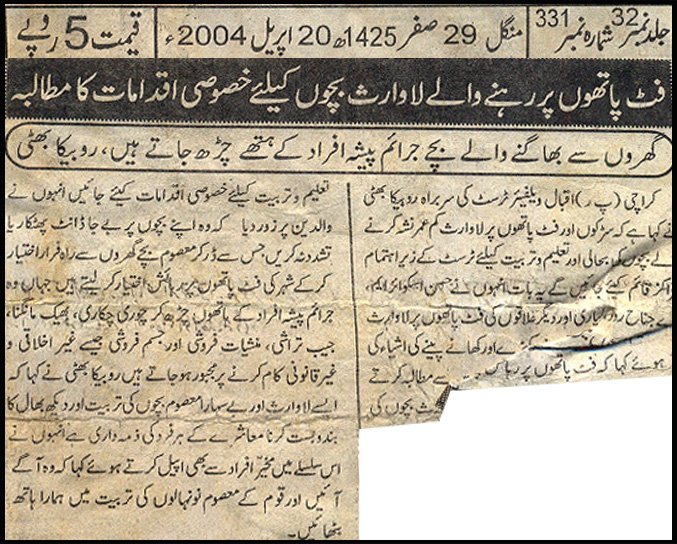 جلد نمبر 32 شمارہ نمبر 331
منگل 29 صفر 1425ھ 20 اپریل 2004ء
قیمت 5 روپے
فٹ پاتھوں پر رہنے والے لاوارث بچوں کیلئے خصوصی اقدامات کا مطالبہ
گھروں سے بھاگنے والے بچے جرائم پیشہ افراد کے ہتھے چڑھ جاتے ہیں، روبیکا بھٹی
کراچی (پ ر) اقبال ویلفیئر ٹرسٹ کی سربراہ روبیکا بھٹی
نے کہا ہے کہ سڑکوں اور فٹ پاتھوں پر لاوارث کم عمر نشہ کرنے
لے بچوں کی بحالی اور تعلیم و تربیت کیلئے ٹرسٹ کے زیر اہتمام
قائم کئے جائیں گے یہ بات انہوں نے
جناح روڈ اور دیگر علاقوں کی فٹ پاتھوں پر لاوارث
اور کھانے پینے کی اشیاء کی
ہوئے کہا کہ فٹ پاتھوں پر سے مطالبہ کرتے
بچوں کی
تعلیم و تربیت کیلئے خصوصی اقدامات کیئے جائیں انہوں نے
والدین پر زور دیا کہ وہ اپنے بچوں پر بے جا ڈانٹ پھٹکار یا
تشدد نہ کریں جس سے ڈر کر معصوم بچے گھروں سے راہ فرار اختیار
کر کے شہر کی فٹ پاتھوں پر رہائش اختیار کر لیتے ہیں جہاں وہ
جرائم پیشہ افراد کے ہاتھوں چڑھ کر چوری چکاری، بھیک مانگنا،
جیب تراشی، منشیات فروشی اور جسم فروشی جیسے غیر اخلاقی و
غیر قانونی کام کرنے پر مجبور ہو جاتے ہیں روبیکا بھٹی نے کہا کہ
ایسے لاوارث اور بے سہارا معصوم بچوں کی تربیت اور دیکھ بھال کا
بندوبست کرنا معاشرے کے ہر فرد کی ذمہ داری ہے انہوں نے
اس سلسلے میں مخیر افراد سے بھی اپیل کرتے ہوئے کہا کہ وہ آگے
آئیں اور قوم کے معصوم نونہالوں کی تربیت میں ہمارا ہاتھ
بٹھائیں۔